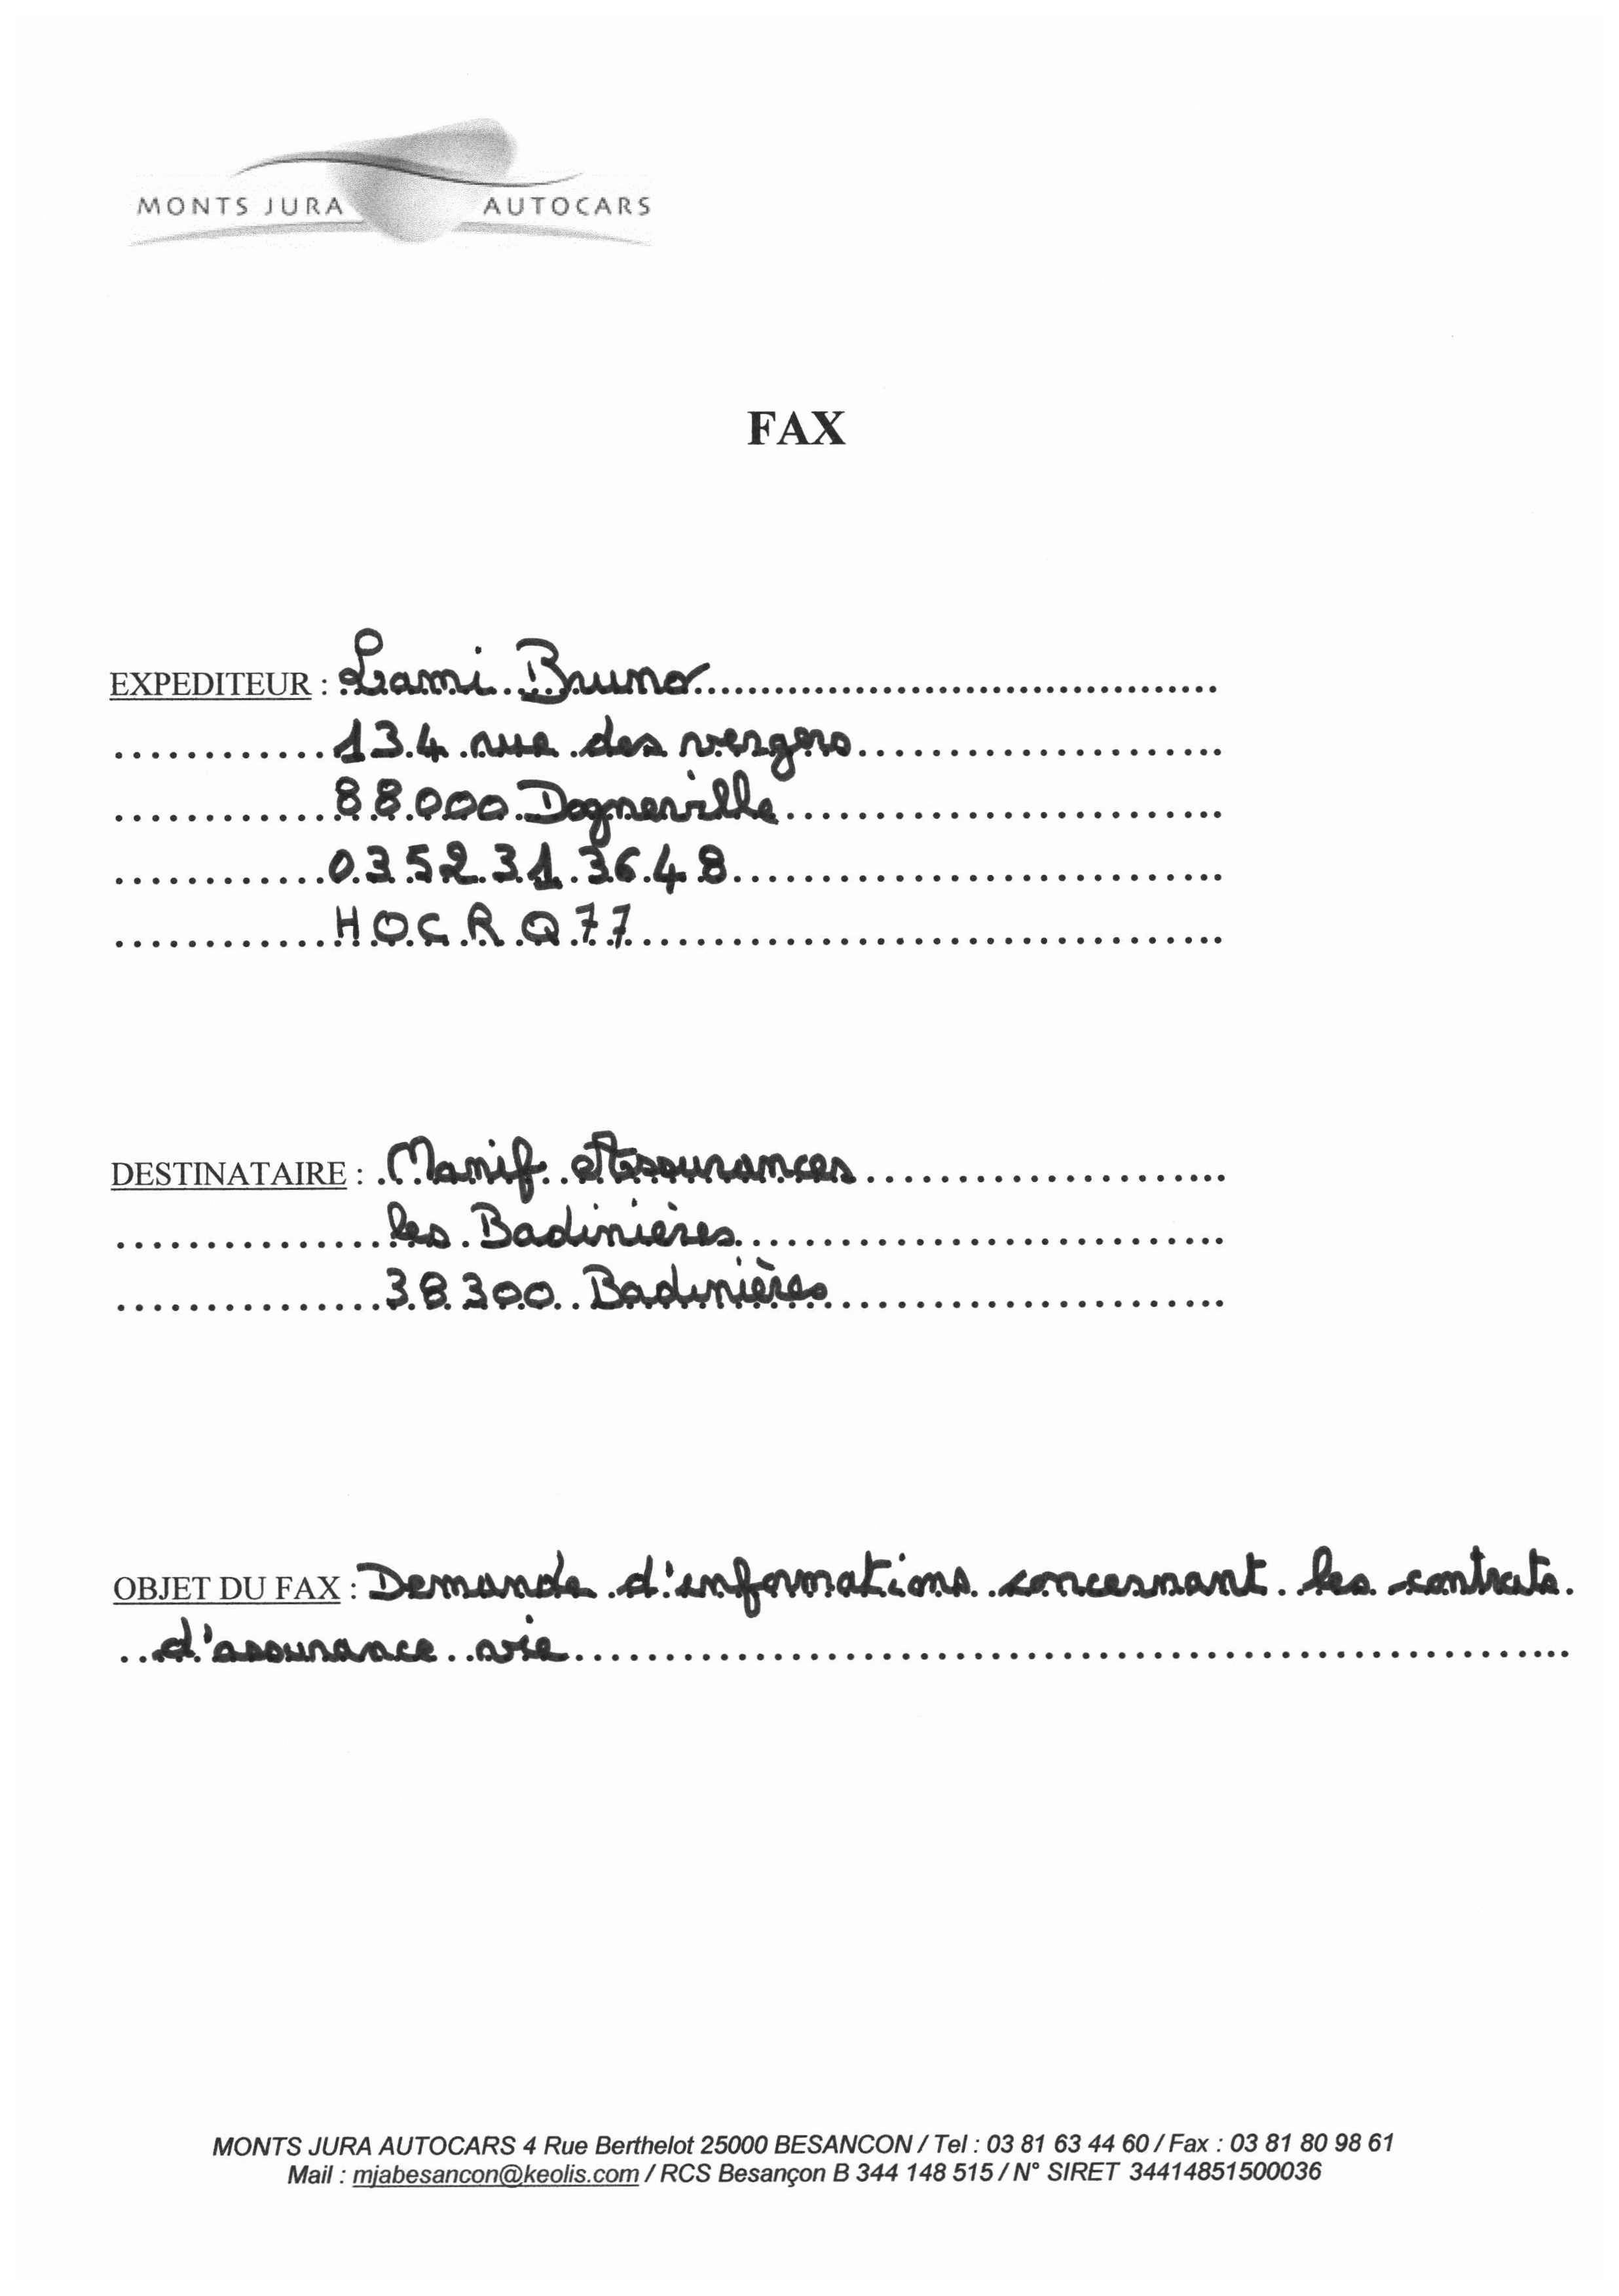 MONTS JURA AUTOCARS
FAX
EXPEDITEUR : Lami Bruno
134 rue des vergers
88000 Dogneville
0352313648
HOCRQ77
DESTINATAIRE : Manif Assurances
les Badinières
38300 Badinières
OBJET DU FAX : Demande d'informations concernant les contrats
d'assurance vie
MONTS JURA AUTOCARS 4 Rue Berthelot 25000 BESANCON / Tel : 03 81 63 44 60 / Fax : 03 81 80 98 61
Mail : mjabesancon@keolis.com / RCS Besançon B 344 148 515 / N° SIRET 34414851500036